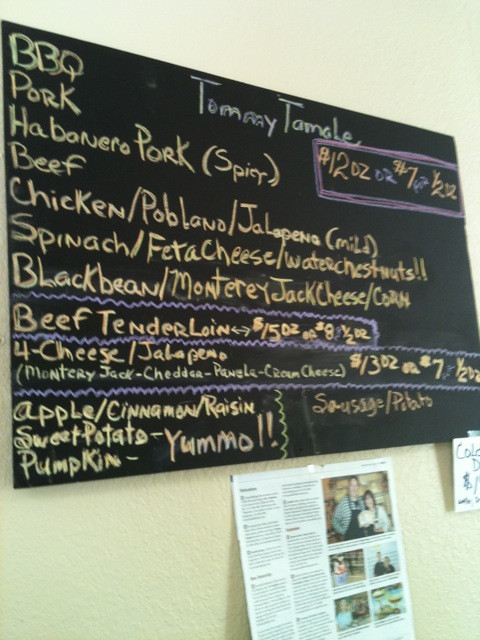 BBQ
Tommy Tamale
Pork
Habanero Pork (Spicy)
$12 DZ or $7 for 1/2 DZ
Beef
Chicken/Poblano/Jalapeno (mild)
Spinach/Feta Cheese/waterchestnuts!!
Blackbean/Monterey Jack Cheese/Corn
Beef Tenderloin ↔ $15 DZ or $8 1/2 DZ
4-Cheese/Jalapeno
(Montery Jack-Cheddar-Panela-Cream Cheese)
$13 DZ or $7 1/2 DZ
apple/Cinnamon/Raisin
Sausage/Potato
Sweet Potato - Yummo!!
Pumpkin -